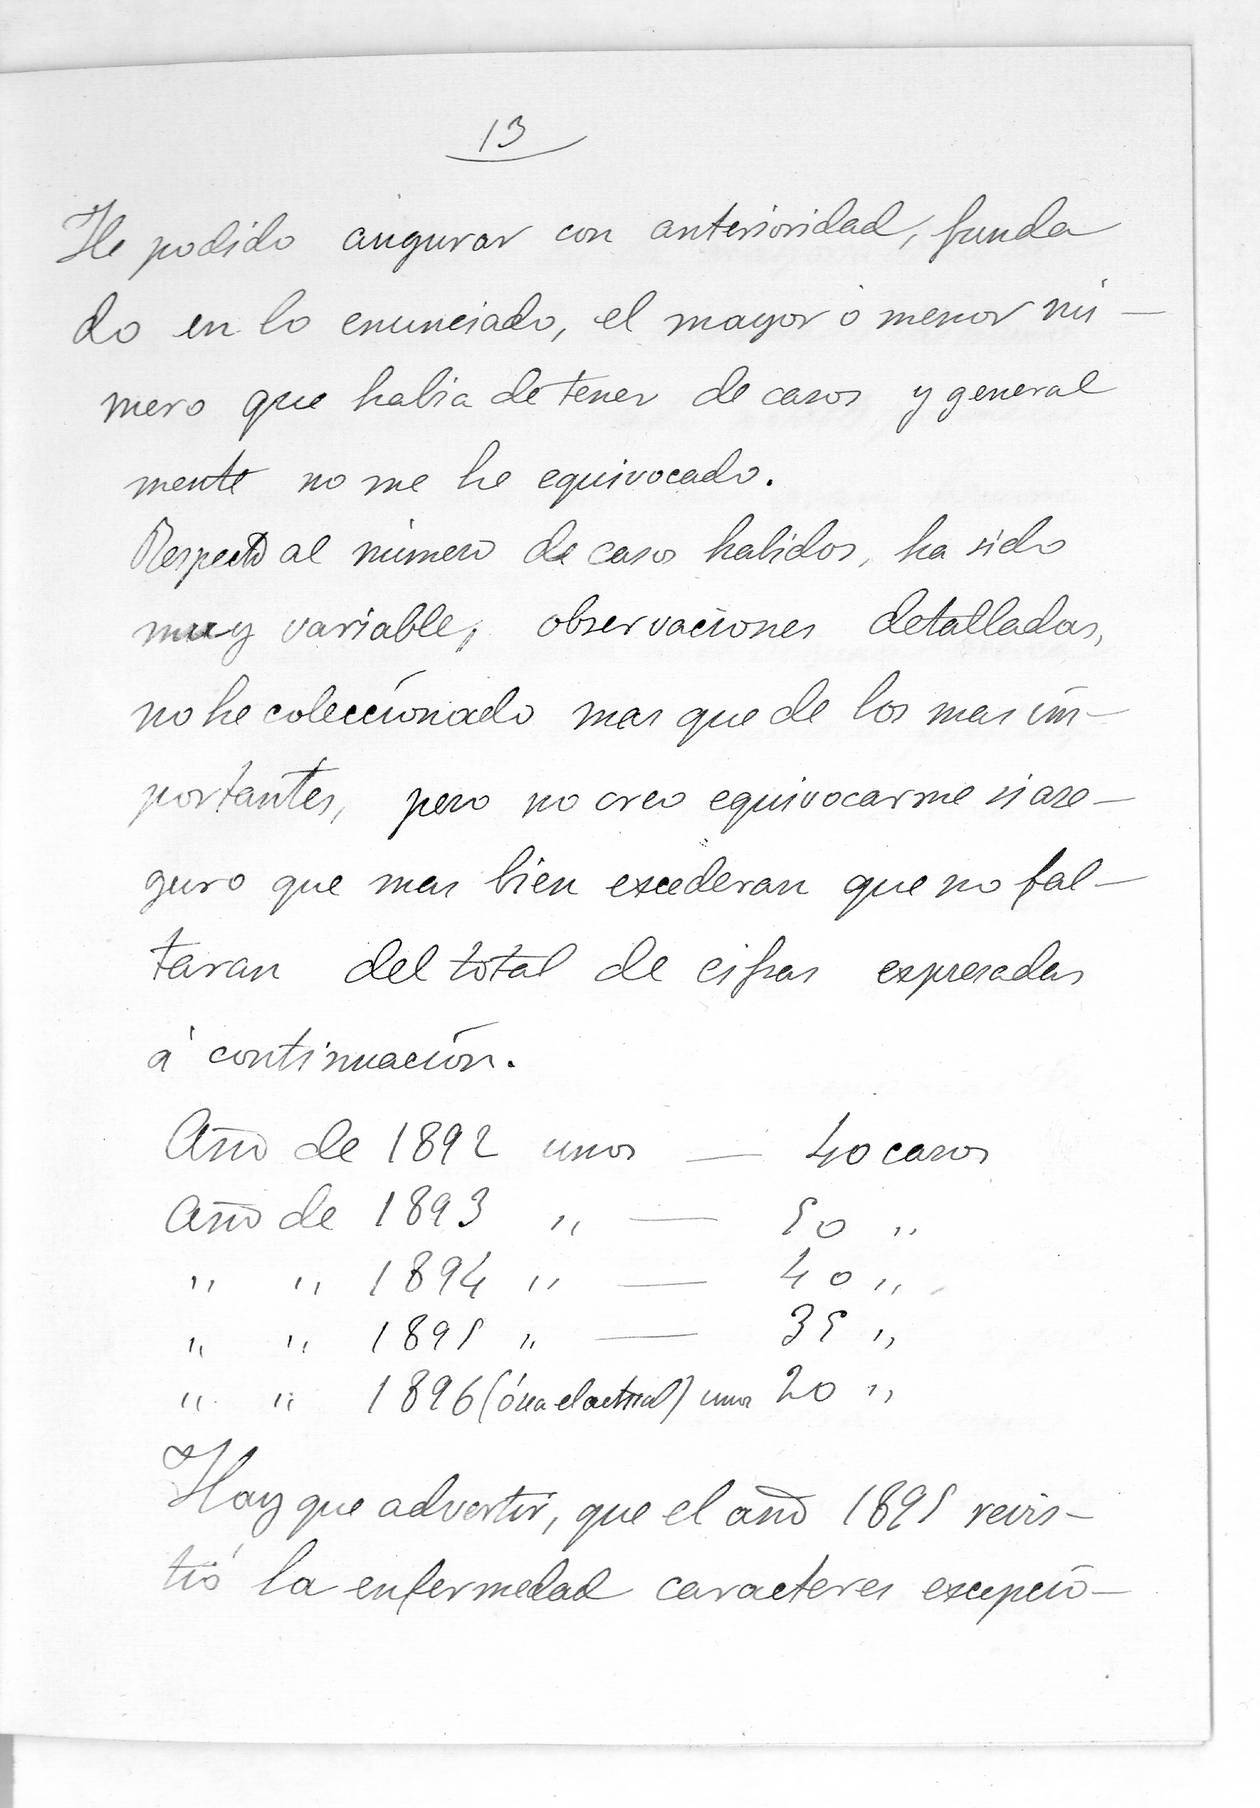 13
He podido augurar con anterioridad, funda
do en lo enunciado, el mayor ó menor nú-
mero que habia de tener de casos y general
mente no me he equivocado.
Respecto al número de casos habidos, ha sido
muy variable, observaciones detalladas,
no he coleccionado mas que de los mas im-
portantes, pero no creo equivocarme si ase-
guro que mas bien excederan que no fal-
taran del total de cifras expresadas
á continuación.
Año de 1892 unos — 40 casos
Año de 1893 „ — 50 „
„ „ 1894 „ — 40 „
„ „ 1895 „ — 35 „
„ „ 1896 (ó sea el actual) unos 20 „
Hay que advertir, que el año 1895 revis-
tió la enfermedad caracteres excepcio-